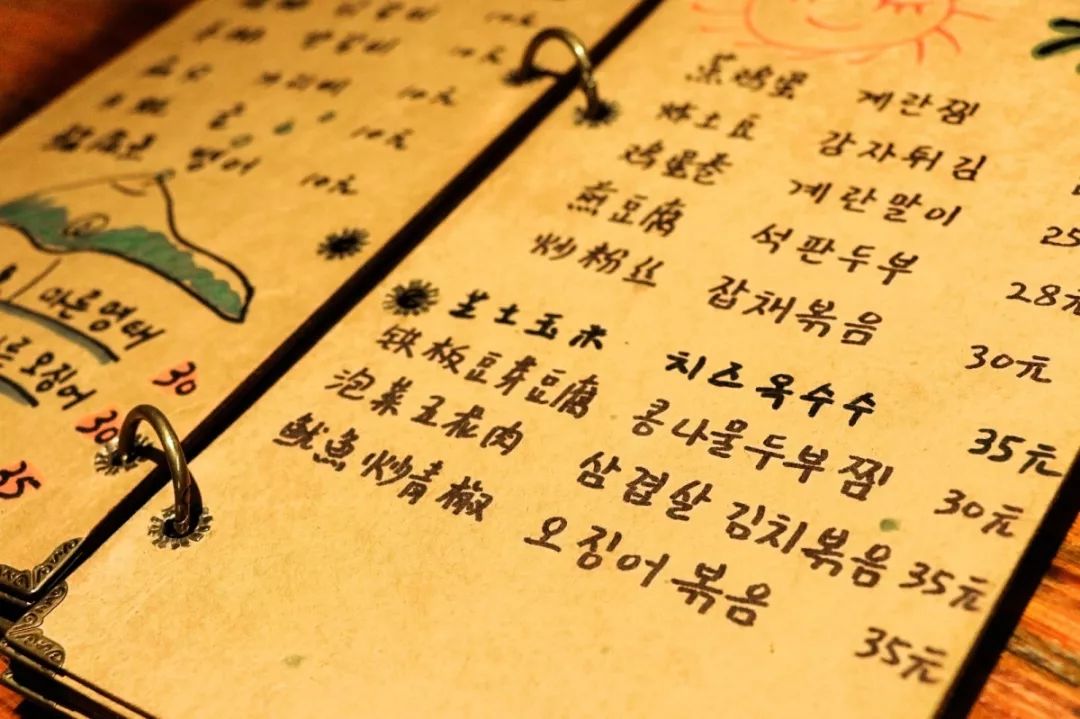 10元
10元
가리비 10元
굴 10元
10元
마른명태 30
른오징어 30
35
蒸鸡蛋 계란찜
炒土豆 감자튀김
鸡蛋卷 계란말이 25
煎豆腐 석판두부 28元
炒粉丝 잡채볶음 30元
芝士玉米 치즈옥수수 35元
铁板豆芽豆腐 콩나물두부찜 30元
泡菜五花肉 삼겹살김치볶음 35元
鱿鱼炒青椒 오징어볶음 35元